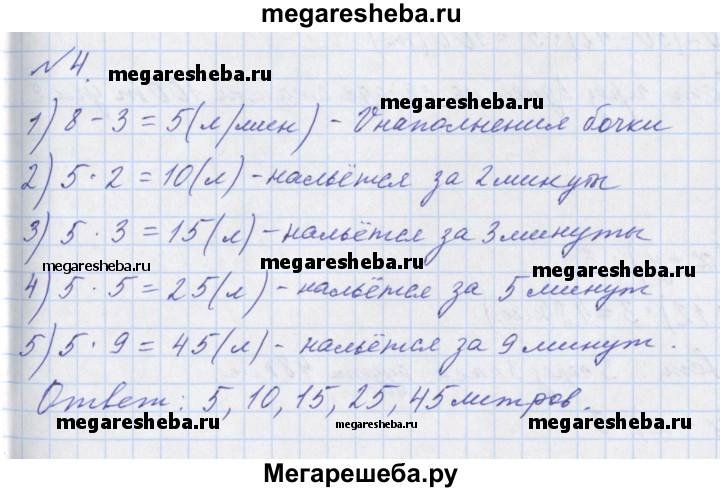 megaresheba.ru
№ 4.
megaresheba.ru
megaresheba.ru
1) 8 - 3 = 5 (л/мин) - V наполнения бочки
megaresheba.ru
2) 5 · 2 = 10 (л) - нальётся за 2 минуты
3) 5 · 3 = 15 (л) - нальётся за 3 минуты
megaresheba.ru megaresheba.ru megaresheba.ru
4) 5 · 5 = 25 (л) - нальётся за 5 минут
5) 5 · 9 = 45 (л) - нальётся за 9 минут.
Ответ: 5, 10, 15, 25, 45 литров.
megaresheba.ru megaresheba.ru megaresheba.ru
Мегарешеба.ру